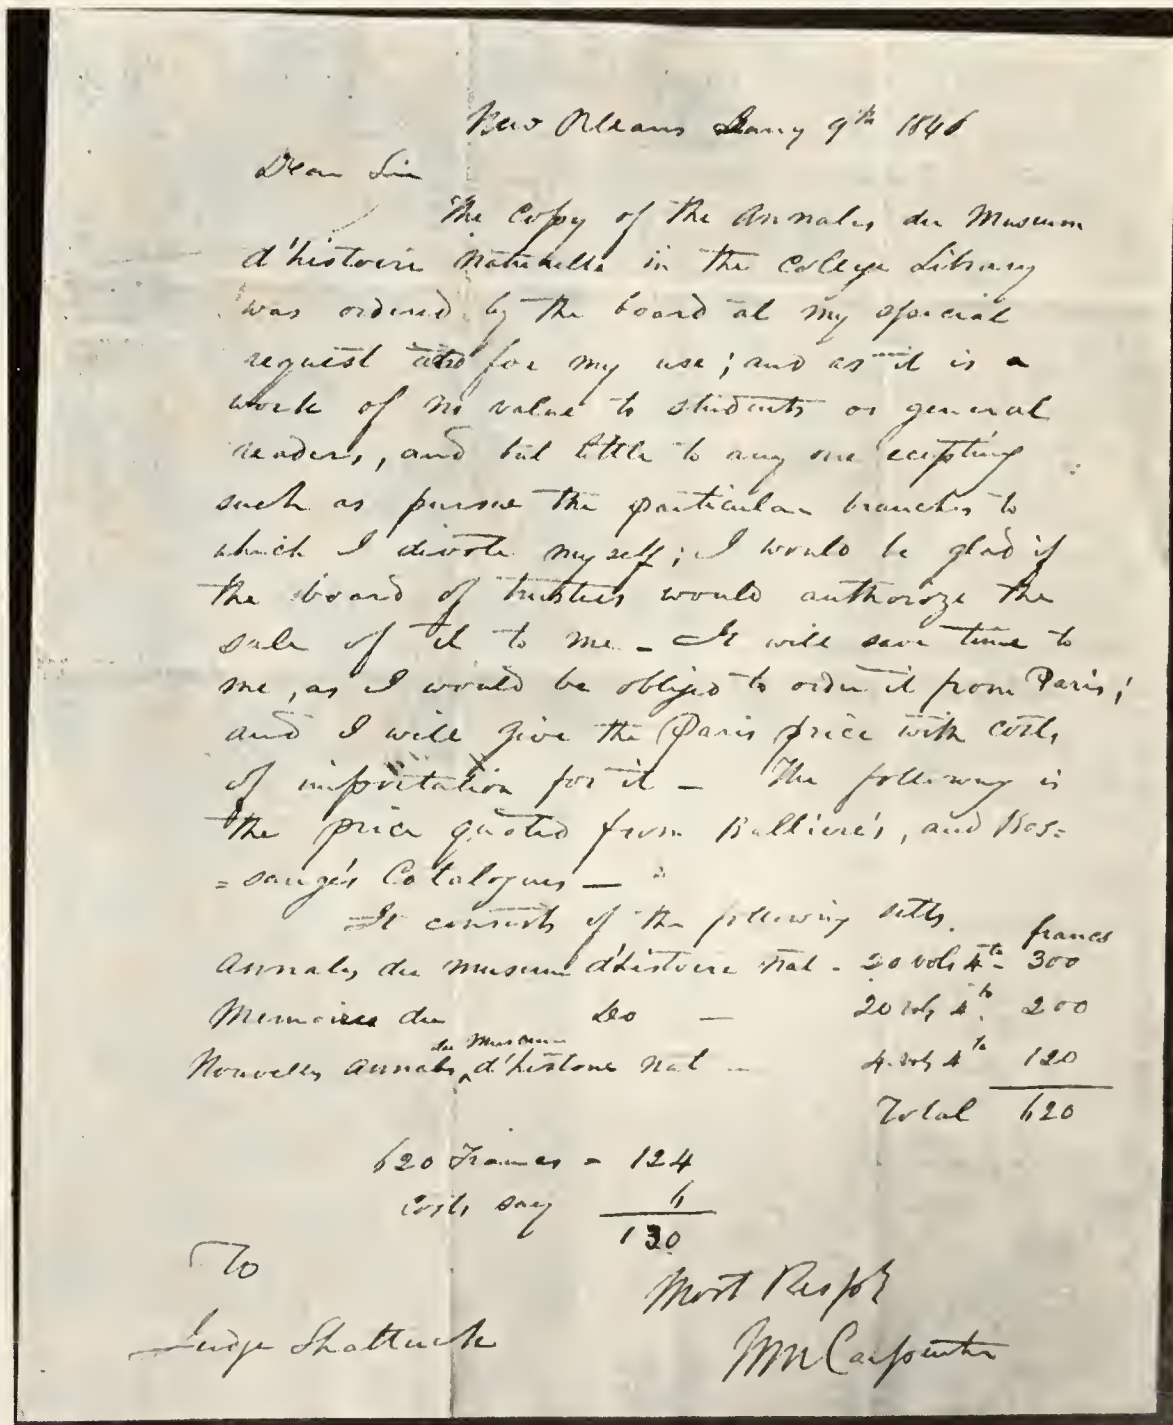 New Orleans Jany 9th 1846
Dear Sir
The Copy of the Annales du Museum
d'histoire Naturelle in the College Library
was ordered by the board at my special
request and for my use; and as it is a
work of no value to students or general
readers, and but little to any one ecepting
such as pursue the particular branches to
which I devote myself; I would be glad if
the board of trustees would authorize the
sale of it to me - It will save time to
me, as I would be obliged to order it from Paris;
and I will give the Paris price with costs
of importation for it - The following is
the price quoted from Balliere's, and Bos=
=sange's Catalogues —
It consists of the following setts.
francs
Annales du museum d'histoire Nat - 20 vols 4to - 300
Memoires du Do — 20 vols 4to. 200
Nouvelles Annales du Museum d'histoire Nat - 4 vols 4to 120
Total 620
620 Francs = 124
Costs say 6
130
To
Judge Shattuck
Most Respy
Wm Carpenter